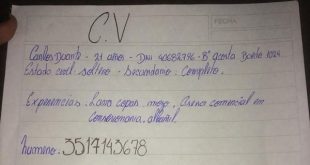 C.V
FECHA
Carlos Duarte - 21 años - Dni 40682796 - B° Acosta
Estado civil soltero - Secundario Completo.
Experiencias: Lava copas, mozo, comercial en
albañil
Numero: 3517143678